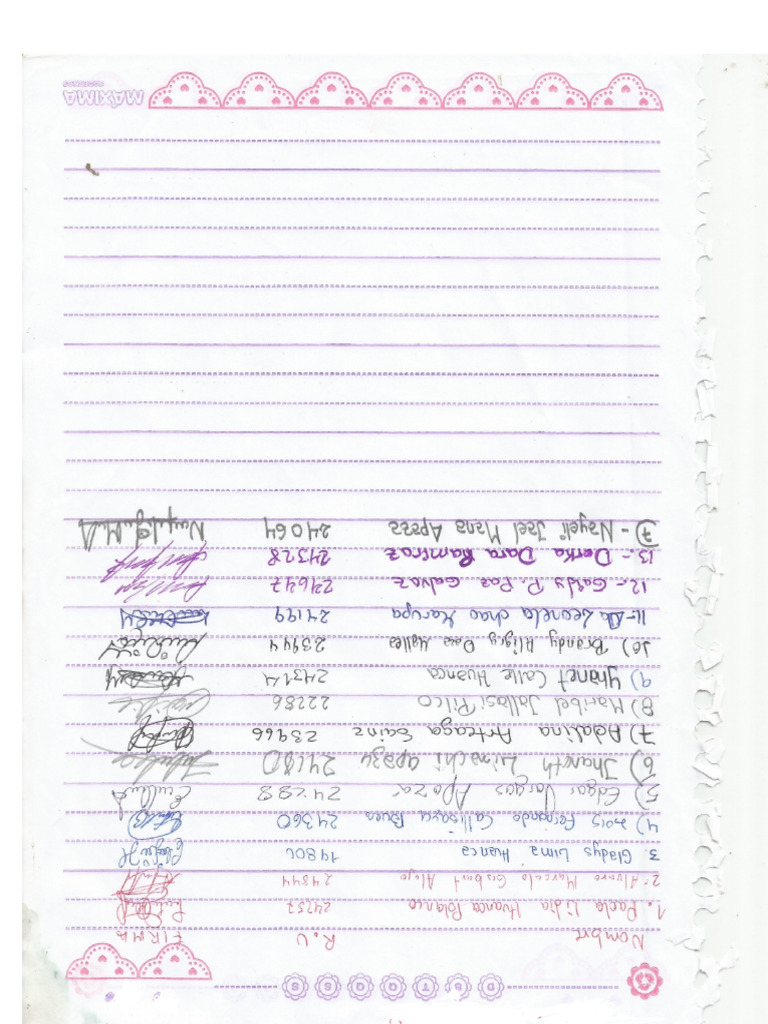 D S T Q Q S S
Nombre R.U FIRMA
1. Paola Lidia Huanca Polanco 24257
2- Alvaro Marcelo Gisbert Alejo 24844
3. Gladys Lima Huanca 14800
4) Luis Fernando Callisaya 24360
5) Edgar Vargas Apaza 24288
6) Jhaneth Limachi apaza 24180
7) Adalina Arteaga Sainz 23966
8) Maribel Jallasi Pilco 22286
9) Yhanet Calle Huanca 24314
10) Brandy Aligry Daza 23944
11- Leonela chao 24199
12.- Galdy R. Paz Galvaz 224647
13.- Derka Dara Ramiraz 24328
7)- Nayeli Jael Mana Apaza 24064
MÁXIMA